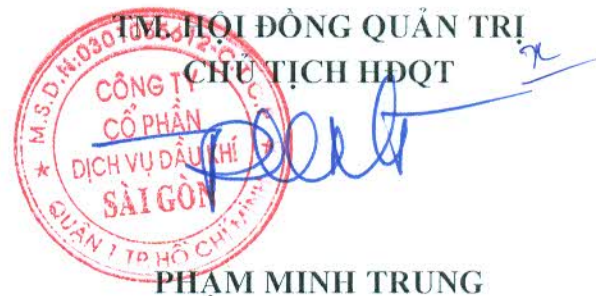 TM. HỘI ĐỒNG QUẢN TRỊ
CHỦ TỊCH HĐQT
CÔNG TY
CỔ PHẦN
DỊCH VỤ DẦU KHÍ
SÀI GÒN
QUẬN 1 TP HỒ CHÍ MINH
PHẠM MINH TRUNG